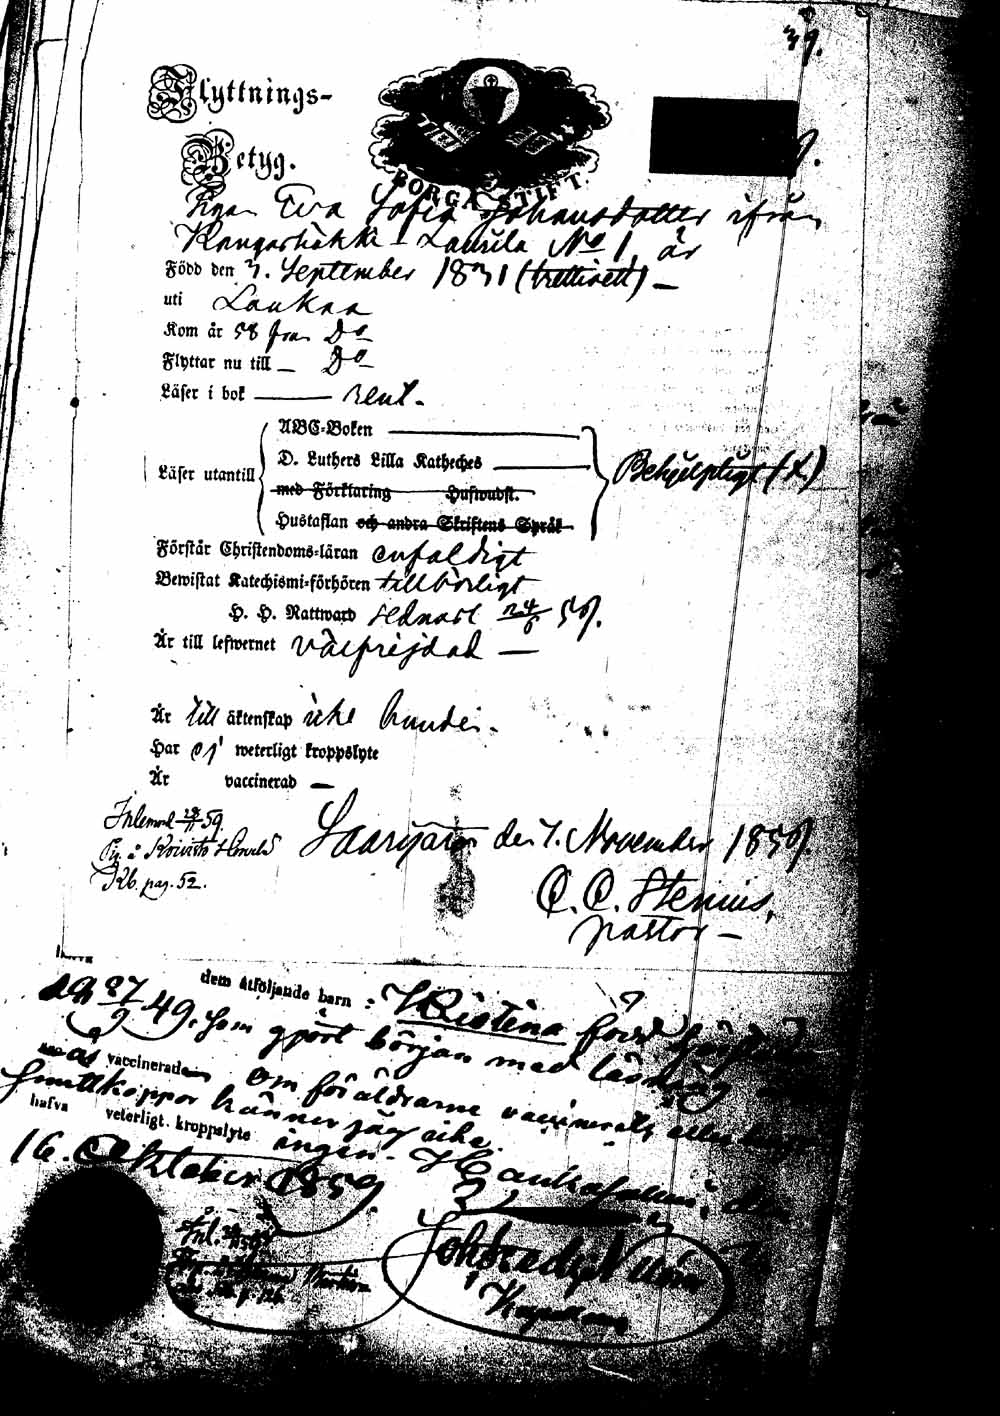 39.
Flyttnings-
Betyg.
BORGÅ STIFT.
Pigan Eva Sofia Johansdotter ifrån
Kangashäkki Laurila No 1, är
Född den 3. September 1831 (trettioett) —
uti Laukaa
Kom år 58 från Do
Flyttar nu till — Do
Läser i bok — rent.
ABC-Boken
Läser utantill
D. Luthers Lilla Katheches
med Förklaring Hufwudst.
Hustaflan och andra Skriftens Språk
Behjelpligt (x)
Förstår Christendoms-läran enfaldigt
Bewistat Katechismi-förhören tillbörligt
H. H. Nattward sednast 24/6 59.
Är till lefwernet välfrejdad —
Är till äktenskap icke bunden.
Har ej weterligt kroppslyte
Är vaccinerad —
Inlemnad 28/11 59.
Kb. pag. 52.
Saarijärvi den 7. November 1859.
C. C. Stenius,
pastor —
dem åtföljande barn: Kristina född
27/9 49. Som gjort början med läsning
vaccinerade Om föräldrarne vaccinerats eller haft
smittkoppor känner jag icke.
hafva veterligt kroppslyte ingen. Hankasalmi, den
16. Oktober 1859.
Inl.